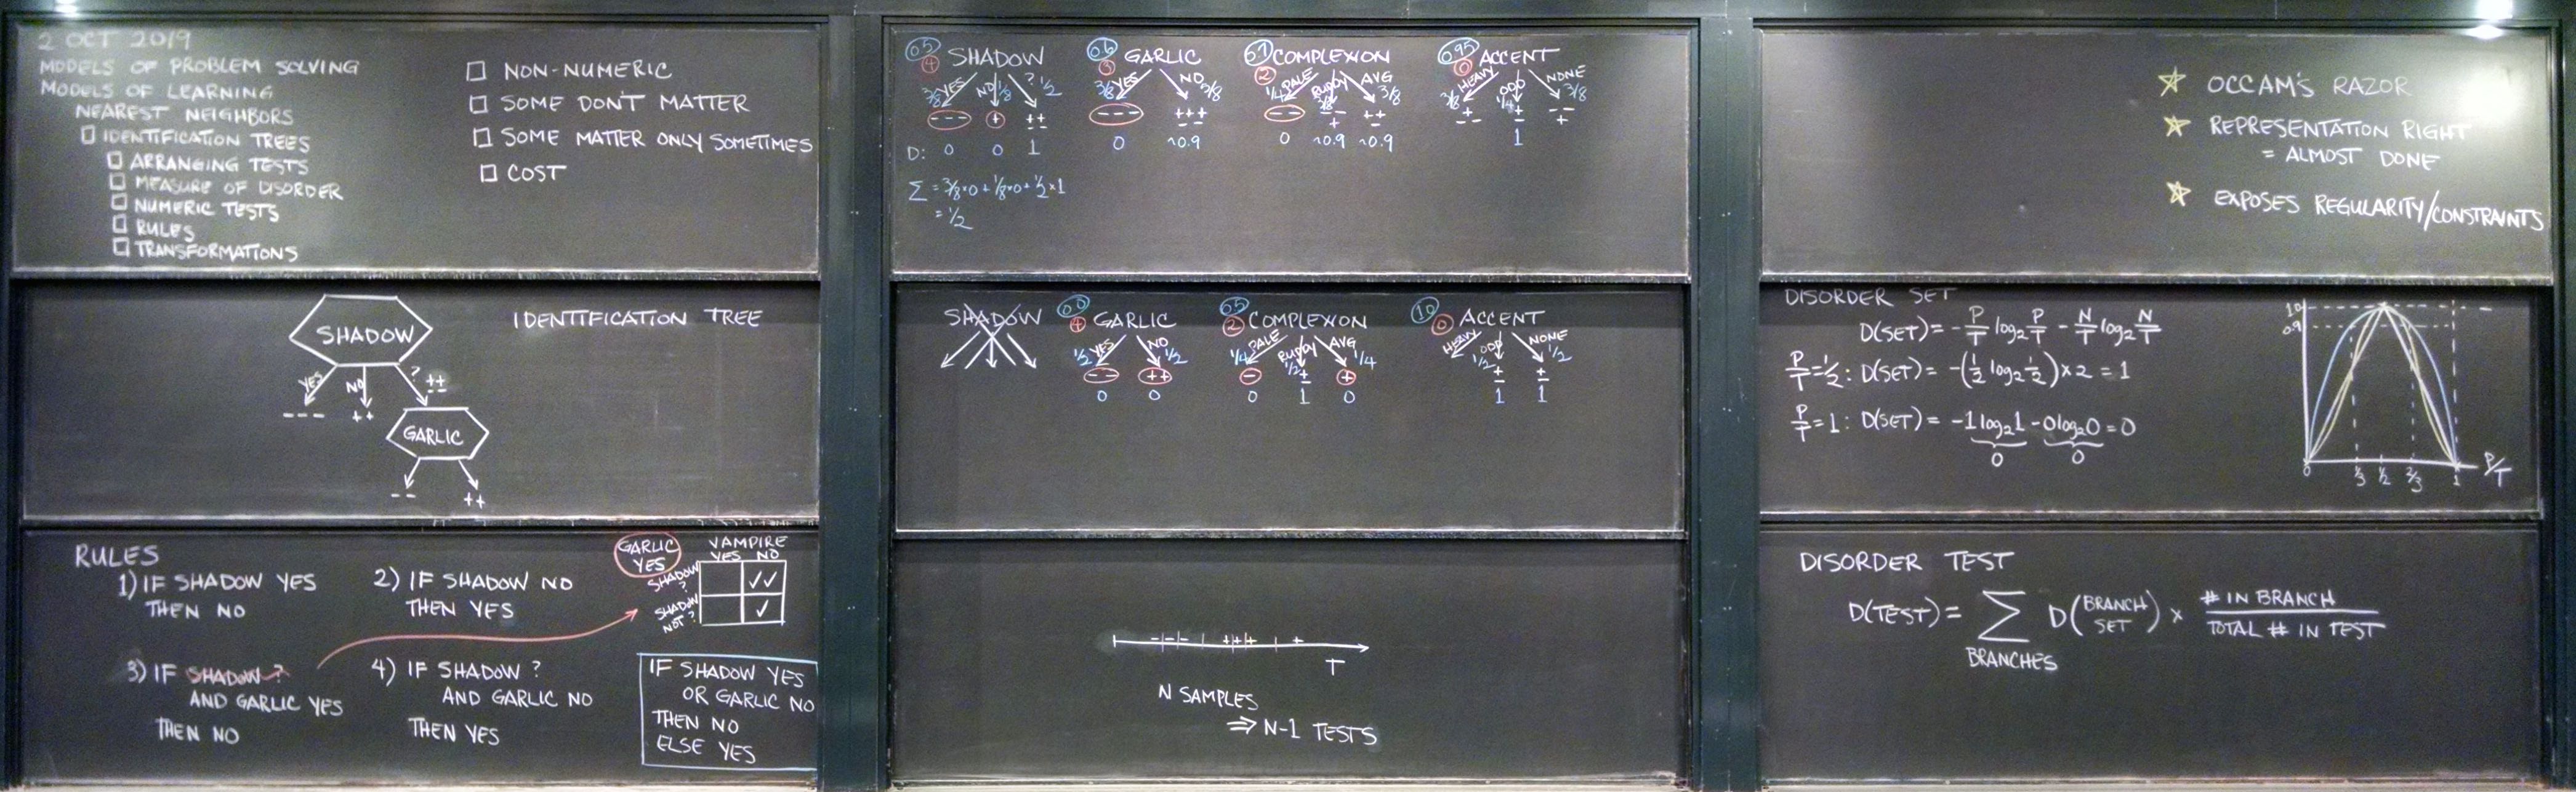 2 OCT 2019
MODELS OF PROBLEM SOLVING
MODELS OF LEARNING
NEAREST NEIGHBORS
□ IDENTIFICATION TREES
□ ARRANGING TESTS
□ MEASURE OF DISORDER
□ NUMERIC TESTS
□ RULES
□ TRANSFORMATIONS
□ NON-NUMERIC
□ SOME DON'T MATTER
□ SOME MATTER ONLY SOMETIMES
□ COST
SHADOW
YES NO ?
++
--
--- ++
GARLIC
-- ++
IDENTIFICATION TREE
RULES
1) IF SHADOW YES
THEN NO
2) IF SHADOW NO
THEN YES
3) IF SHADOW ?
AND GARLIC YES
THEN NO
4) IF SHADOW ?
AND GARLIC NO
THEN YES
GARLIC
YES
VAMPIRE
YES NO
SHADOW
? ✓✓
SHADOW
NOT ? ✓
IF SHADOW YES
OR GARLIC NO
THEN NO
ELSE YES
0.5 SHADOW
4
3/8 YES NO 1/8 ? 1/2
--- + ++
--
D: 0 0 1
Σ = 3/8*0 + 1/8*0 + 1/2*1
= 1/2
0.6 GARLIC
3
3/8 YES NO 5/8
--- +++
--
0 ~0.9
0.7 COMPLEXION
2
1/4 PALE RUDDY 3/8 AVG 3/8
-- -- ++
+ --
0 ~0.9 ~0.9
0.95 ACCENT
0
3/8 HEAVY ODD 1/4 NONE 3/8
+ + --
-- - +
1
SHADOW
0.0 GARLIC
4
1/2 YES NO 1/2
-- ++
0 0
0.5 COMPLEXION
2
1/4 PALE RUDDY 1/2 AVG 1/4
- + +
-
0 1 0
1.0 ACCENT
0
HEAVY ODD 1/2 NONE 1/2
+ +
- -
1 1
-|-|- | +|+|+ | +
T
N SAMPLES
⇒ N-1 TESTS
☆ OCCAM'S RAZOR
☆ REPRESENTATION RIGHT
= ALMOST DONE
☆ EXPOSES REGULARITY/CONSTRAINTS
DISORDER SET
D(SET) = - P/T log₂ P/T - N/T log₂ N/T
P/T = 1/2: D(SET) = -(1/2 log₂ 1/2) × 2 = 1
P/T = 1: D(SET) = -1 log₂ 1 - 0 log₂ 0 = 0
0 0
1.0
0.9
0 1/3 1/2 2/3 1 P/T
DISORDER TEST
D(TEST) = Σ D(BRANCH SET) × # IN BRANCH / TOTAL # IN TEST
BRANCHES